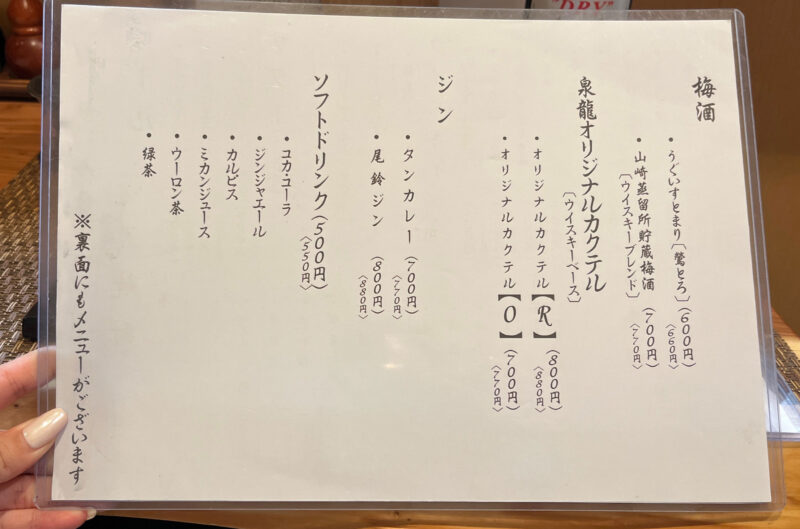 "DRY"
梅酒
・うぐいすとまり〔鶯とろ〕(600円)
〈660円〉
・山崎蒸留所貯蔵梅酒
〔ウイスキーブレンド〕(700円)
〈770円〉
泉龍オリジナルカクテル
〔ウイスキーベース〕
・オリジナルカクテル【R】(800円)
〈880円〉
・オリジナルカクテル【O】(700円)
〈770円〉
ジン
・タンカレー(700円)
〈770円〉
・尾鈴ジン(800円)
〈880円〉
ソフトドリンク(500円)
〈550円〉
・コカ・コーラ
・ジンジャエール
・カルピス
・ミカンジュース
・ウーロン茶
・緑茶
※裏面にもメニューがございます